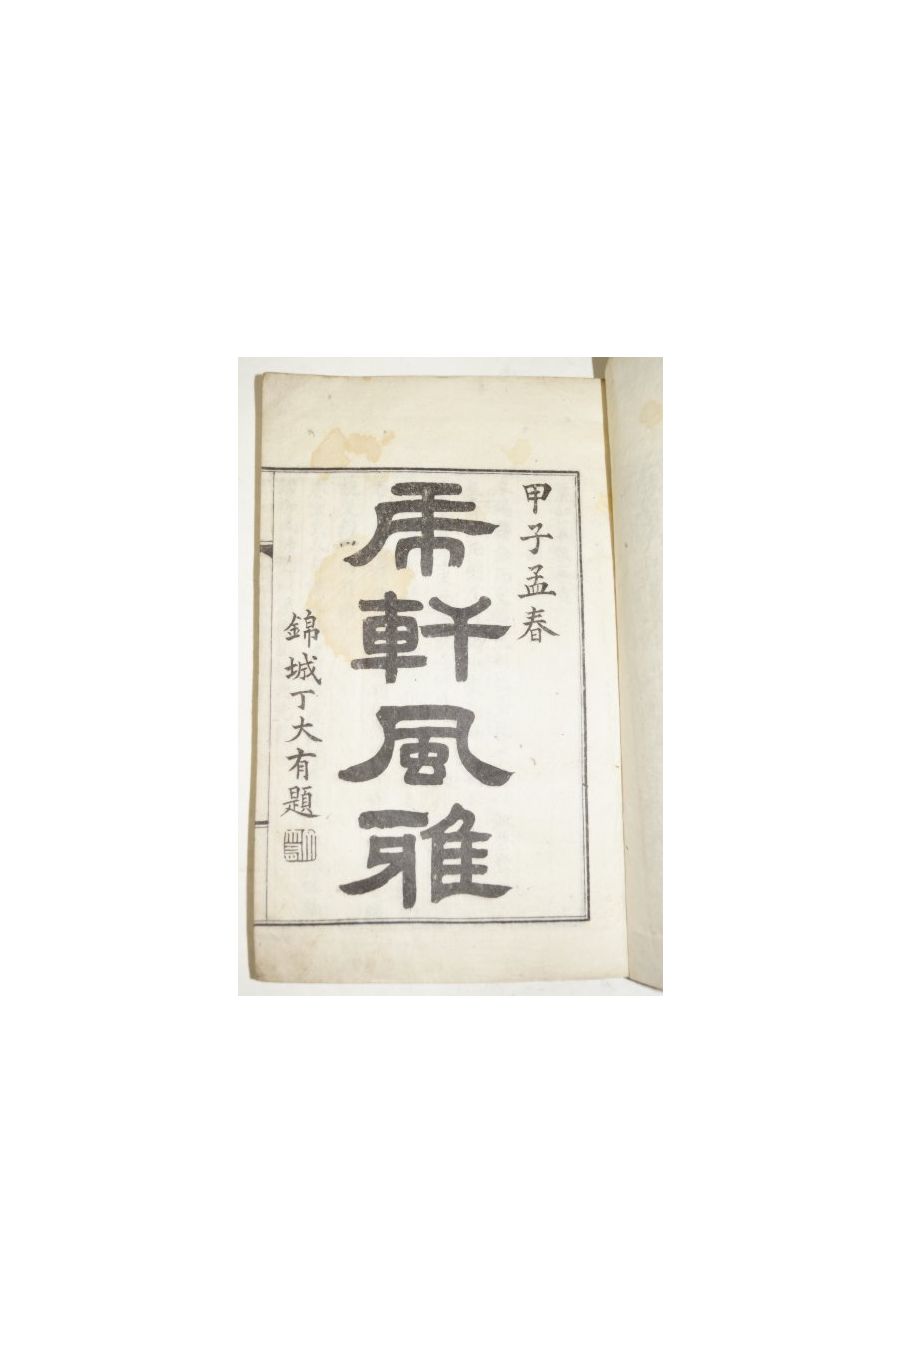 甲子孟春
乕軒風雅
錦城丁大有題